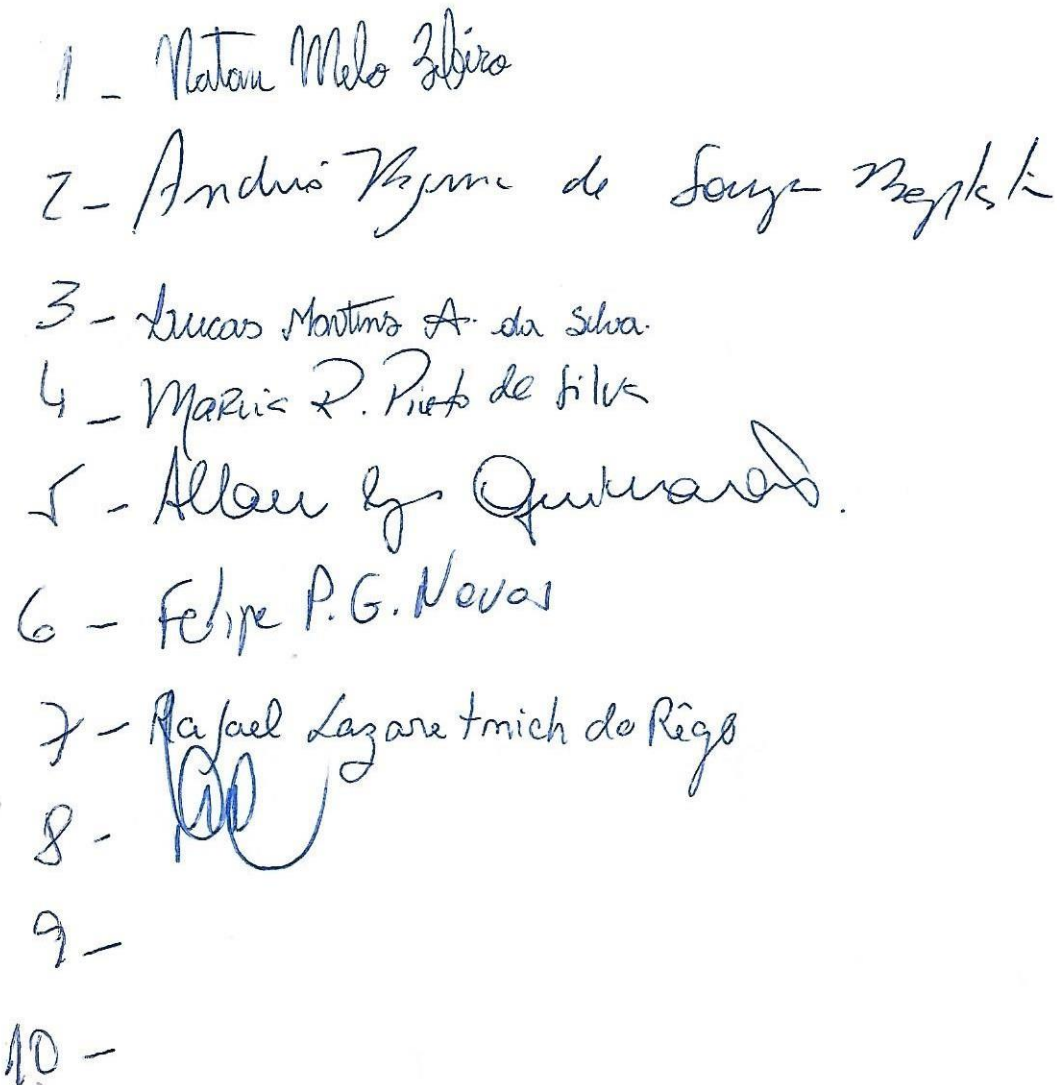 1 - Natan Melo
2 - André de Souza
3 - Lucas Martins A. da Silva.
4 - Marcia P. Pinto de Silva
5 - Allan Guimarães.
6 - Felipe P. G. Novas
7 - Rafael Lazaretmich do Rêgo
8 -
9 -
10 -